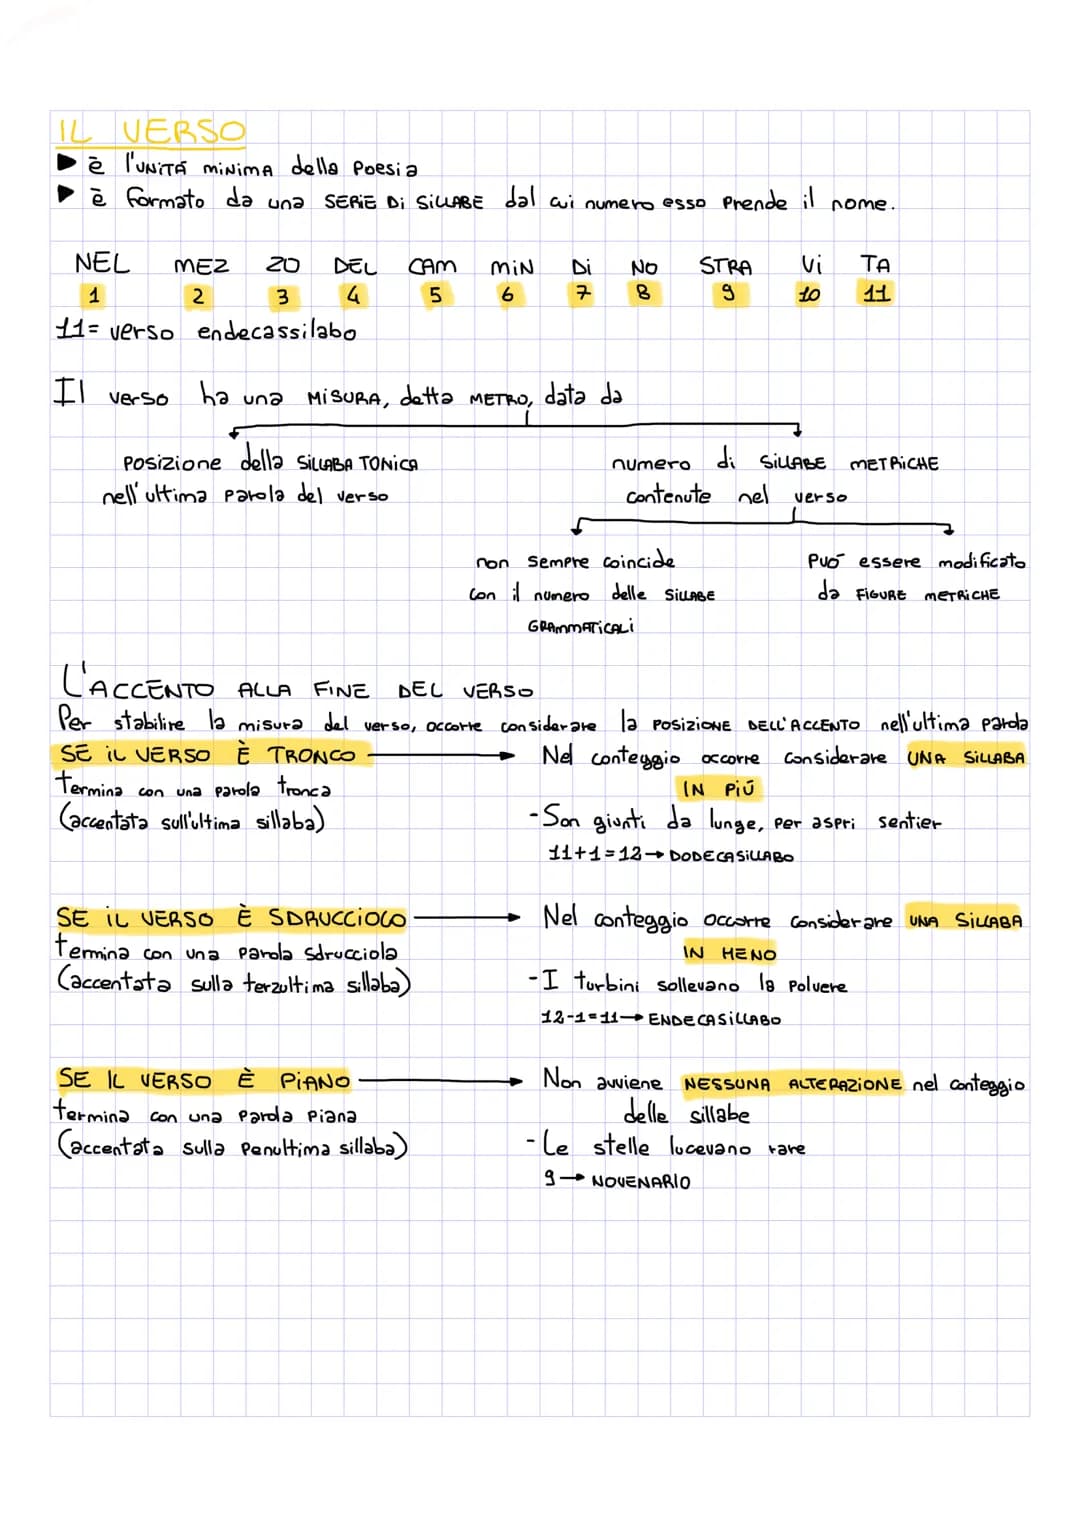 IL VERSO
▶ è l'UNITÁ MINIMA della Poesia
▶ è formato da una SERIE Di SiLLABE dal cui numero esso prende il nome.
NEL MEZ ZO DEL CAM MIN Di NO STRA Vi TA
1 2 3 4 5 6 7 8 9 10 11
11= verso endecassilabo
Il verso ha una MISURA, detta METRO, data da
POSIZIONE della SILLABA TONICA
nell'ultima parola del verso
numero di SiLLABE METRICHE
contenute nel verso
non sempre coincide
con il numero delle SILLABE
GRAMMATICALI
Può essere modificato
da FIGURE METRICHE
L'ACCENTO ALLA FINE DEL VERSO
Per stabilire la misura del verso, occorre considerare la POSIZIONE DELL'ACCENTO nell'ultima parola
SE IL VERSO È TRONCO → Nel conteggio occorre considerare UNA SILLABA
IN PIÚ
termina con una parola tronca
(accentata sull'ultima sillaba)
-Son giunti da lunge, per aspri sentier
11+1=12→ DODECASILLABO
SE IL VERSO È SDRUCCIOLO → Nel conteggio occorre considerare UNA SILLABA
IN MENO
termina con una parola sdrucciola
(accentata sulla terzultima sillaba)
-I turbini sollevano la polvere
12-1=11→ ENDECASILLABO
SE IL VERSO È PIANO → Non avviene NESSUNA ALTERAZIONE nel conteggio
delle sillabe
termina con una parola piana
(accentata sulla penultima sillaba)
-Le stelle lucevano rare
9→ NOVENARIO